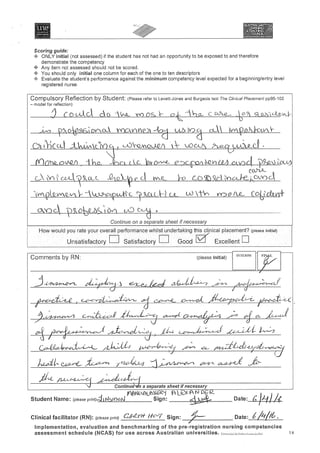 Scoring guide:
ONLY initial (not assessed) if the student has not had an opportunity to be exposed to and therefore
demonstrate the competency
Any item not assessed should not be scored.
You should only initial one column for each of the one to ten descriptors
Evaluate the student's performance against the minimum competency level expected for a beginning/entry level
registered nurse
Compulsory Reflection by Student: (Please refer to Levett-Jones and Bourgeois text The Clinical Placement pp95-102
– model for reflection)
I could do the most of the care for resident
in professional manner by using all important
critical thinking, whenever it was required.
Moreover, the home experiences and previous
clinical helped me to coordinate, and care
implement practice with more confident
and profession way.
Continue on a separate sheet if necessary
How would you rate your overall performance whilst undertaking this clinical placement? (please initial)
Unsatisfactory Satisfactory Good Excellent
Comments by RN: (please initial) FINAL
displays in professional
practice, coordination of care and practice
critical thinking and analysis is of a level
of professional standing, the combined with his
collaborative skills working in a multidisciplinary
health care team makes an asset to
the nursing industry
Continue on a separate sheet if necessary
Student Name: (please print) Sign: Date:
Clinical facilitator (RN): (please print) Sign: Date:
Implementation, evaluation and benchmarking of the pre-registration nursing competencies
assessment schedule (NCAS) for use across Australian universities.